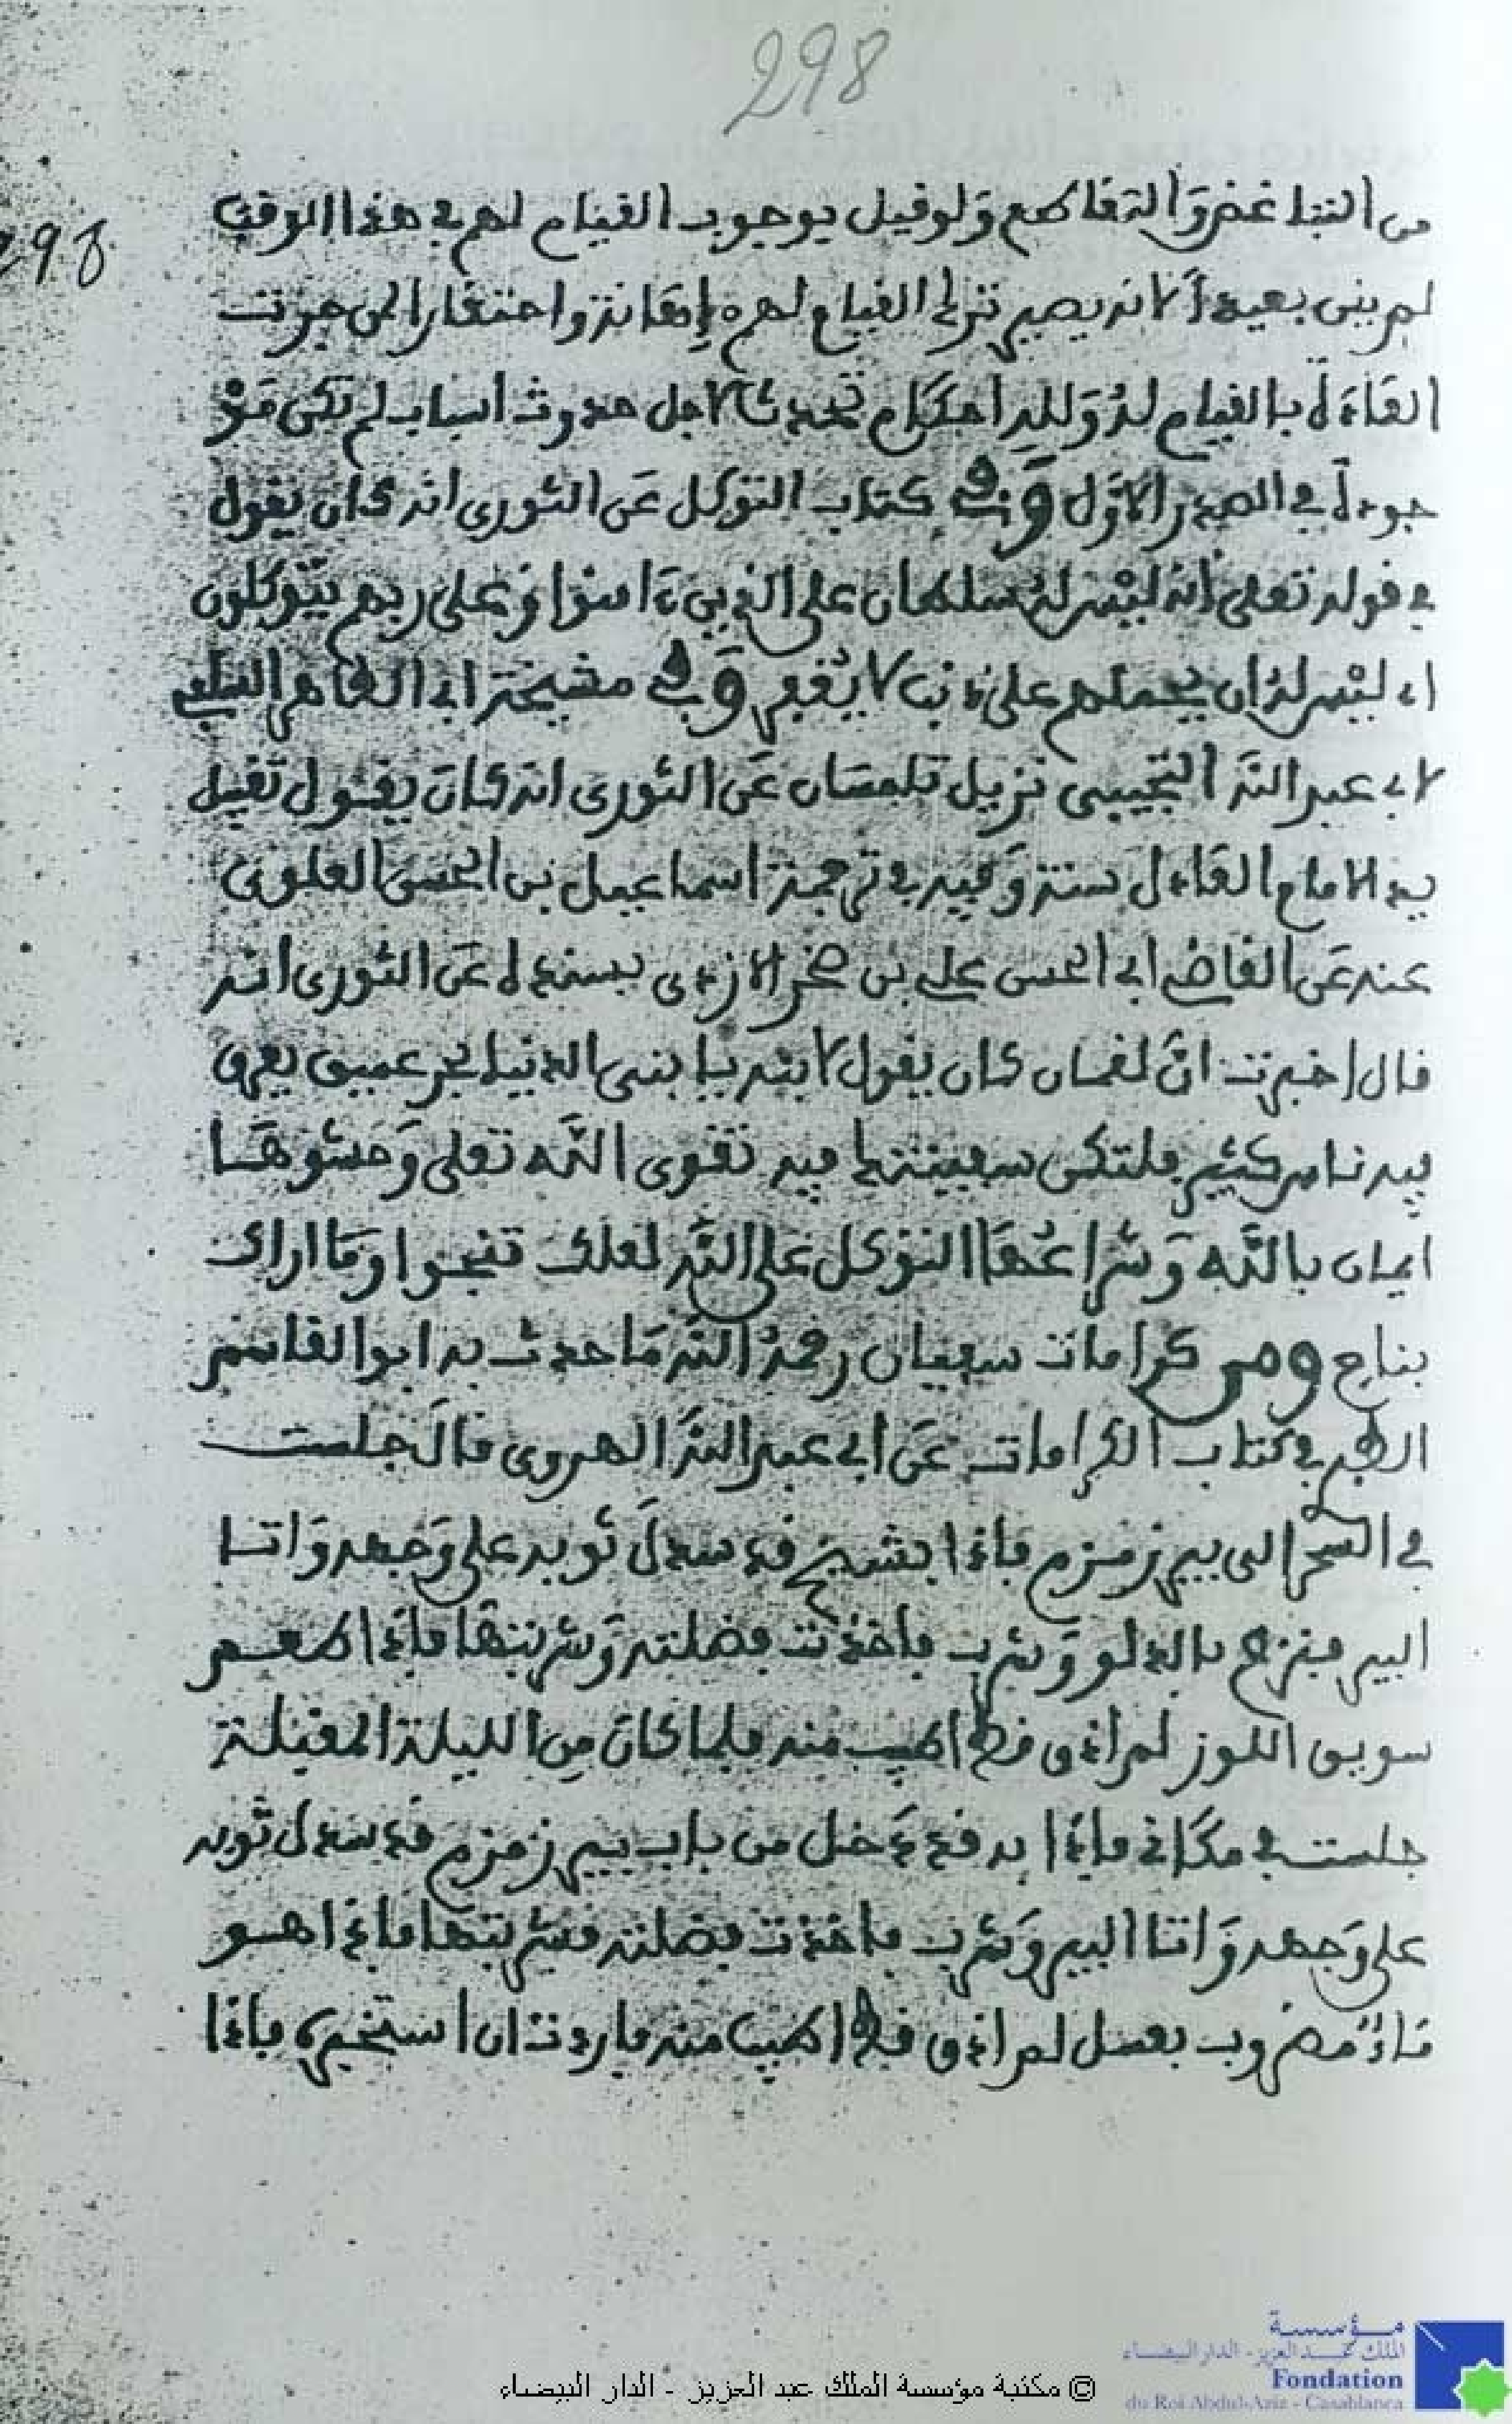 298
298
من التباغض والتقاطع ولو قيل بوجوب القيام لهم في هذا الوقت
لم يبق بعيدا لانه يصير ترك القيام لهم إهانة واحتقارا لمن جرت
العادة بالقيام له ولله احكام تحدث لاجل حدوث اسباب لم تكن مو
جودة في الصدر الاول وفي كتاب التوكل عن الثوري انه كان يقول
في قوله تعلى انه ليس له سلطان على الذين ءامنوا وعلى ربهم يتوكلون
اي ليس له ان يحملهم على ذنب لا يغفر وفي مشيخة ابي الطاهر السلفي
لابي عبد الله التجيبي نزيل تلمسان عن الثوري انه كان يقول تقبيل
يد الامام العادل سنة وفيه في ترجمة اسماعيل بن الحسن العلوي
عنه عن القاضي ابي الحسن علي بن صخر الازدي بسنده عن الثوري انه
قال اخبرت ان لقمان كان يقول لابنه يا بني الدنيا بحر عميق يغرق
فيه ناس كثير فلتكن سفينتها فيه تقوى الله تعلى وحشوها
ايمان بالله وشراعها التوكل على الله لعلك تنجوا وما اراك
بناج ومن كرامات سفيان رحمه الله ما حدث به ابو القاسم
في كتاب الكرامات عن ابي عبد الله الهروي قال جلست
في السحر الى بير زمزم فاذا بشيخ قد سدل ثوبه على وجهه واتا
البير فنزح بالدلو وشرب فاخذت فضلته وشربتها فاذا طعم
سويق اللوز لم اذق قط اطيب منه فلما كان من الليلة المقبلة
جلست في مكاني فاذا به قد دخل من باب بير زمزم قد سدل ثوبه
على وجهه واتا البير وشرب فاخذت فضلته فشربتها فاذا هو
ماء مضروب بعسل لم اذق قط اطيب منه فاردت ان استخبره فاذا
© مكتبة مؤسسة الملك عبد العزيز - الدار البيضاء
مؤسسة
الملك عبد العزيز - الدار البيضاء
Fondation
du Roi Abdul-Aziz - Casablanca